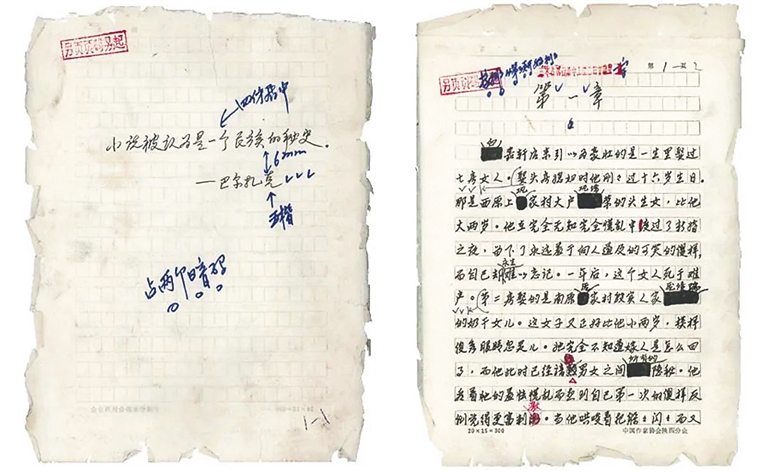 另页页码另起
四仿居中
小说被认为是一个民族的秘史。
6mm
——巴尔扎克
五楷
占两个暗码
1-1
第1页
第一章
白嘉轩后来引以为豪壮的是一生里娶过
七房女人。娶头房媳妇时他刚々过十六岁生日。
那是西原上巩家村大户巩增荣的头生女，比他
大两岁。他在完全无知完全慌乱中度过了新婚
之夜，留下了永远羞于向人道及的可笑的傻样，
而自己却永生难以忘记。一年后，这个女人死于难
产。第二房娶的是南原庞家村殷实人家庞修瑞
的奶干女儿。这女子又正好比他小两岁，模样
俊秀眼睛忽灵儿。她完全不知道嫁人是怎么回
事，而他此时已经谙熟男女之间所有的隐秘。他
看着她的羞怯慌乱而想到自己第一次的傻样反
倒觉得更富刺激。当他哄唆着把躲々闪々而又
20×15=300
中国作家协会陕西分会